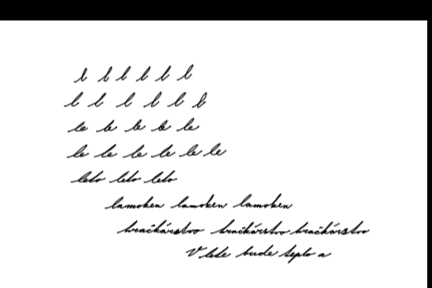 l l l l l l
l l l l l l
le le le le le
le le le le le le
leto leto leto
lamohen lamohen lamohen
hračkárstvo hračkárstvo hračkárstvo
V lete bude teplo a